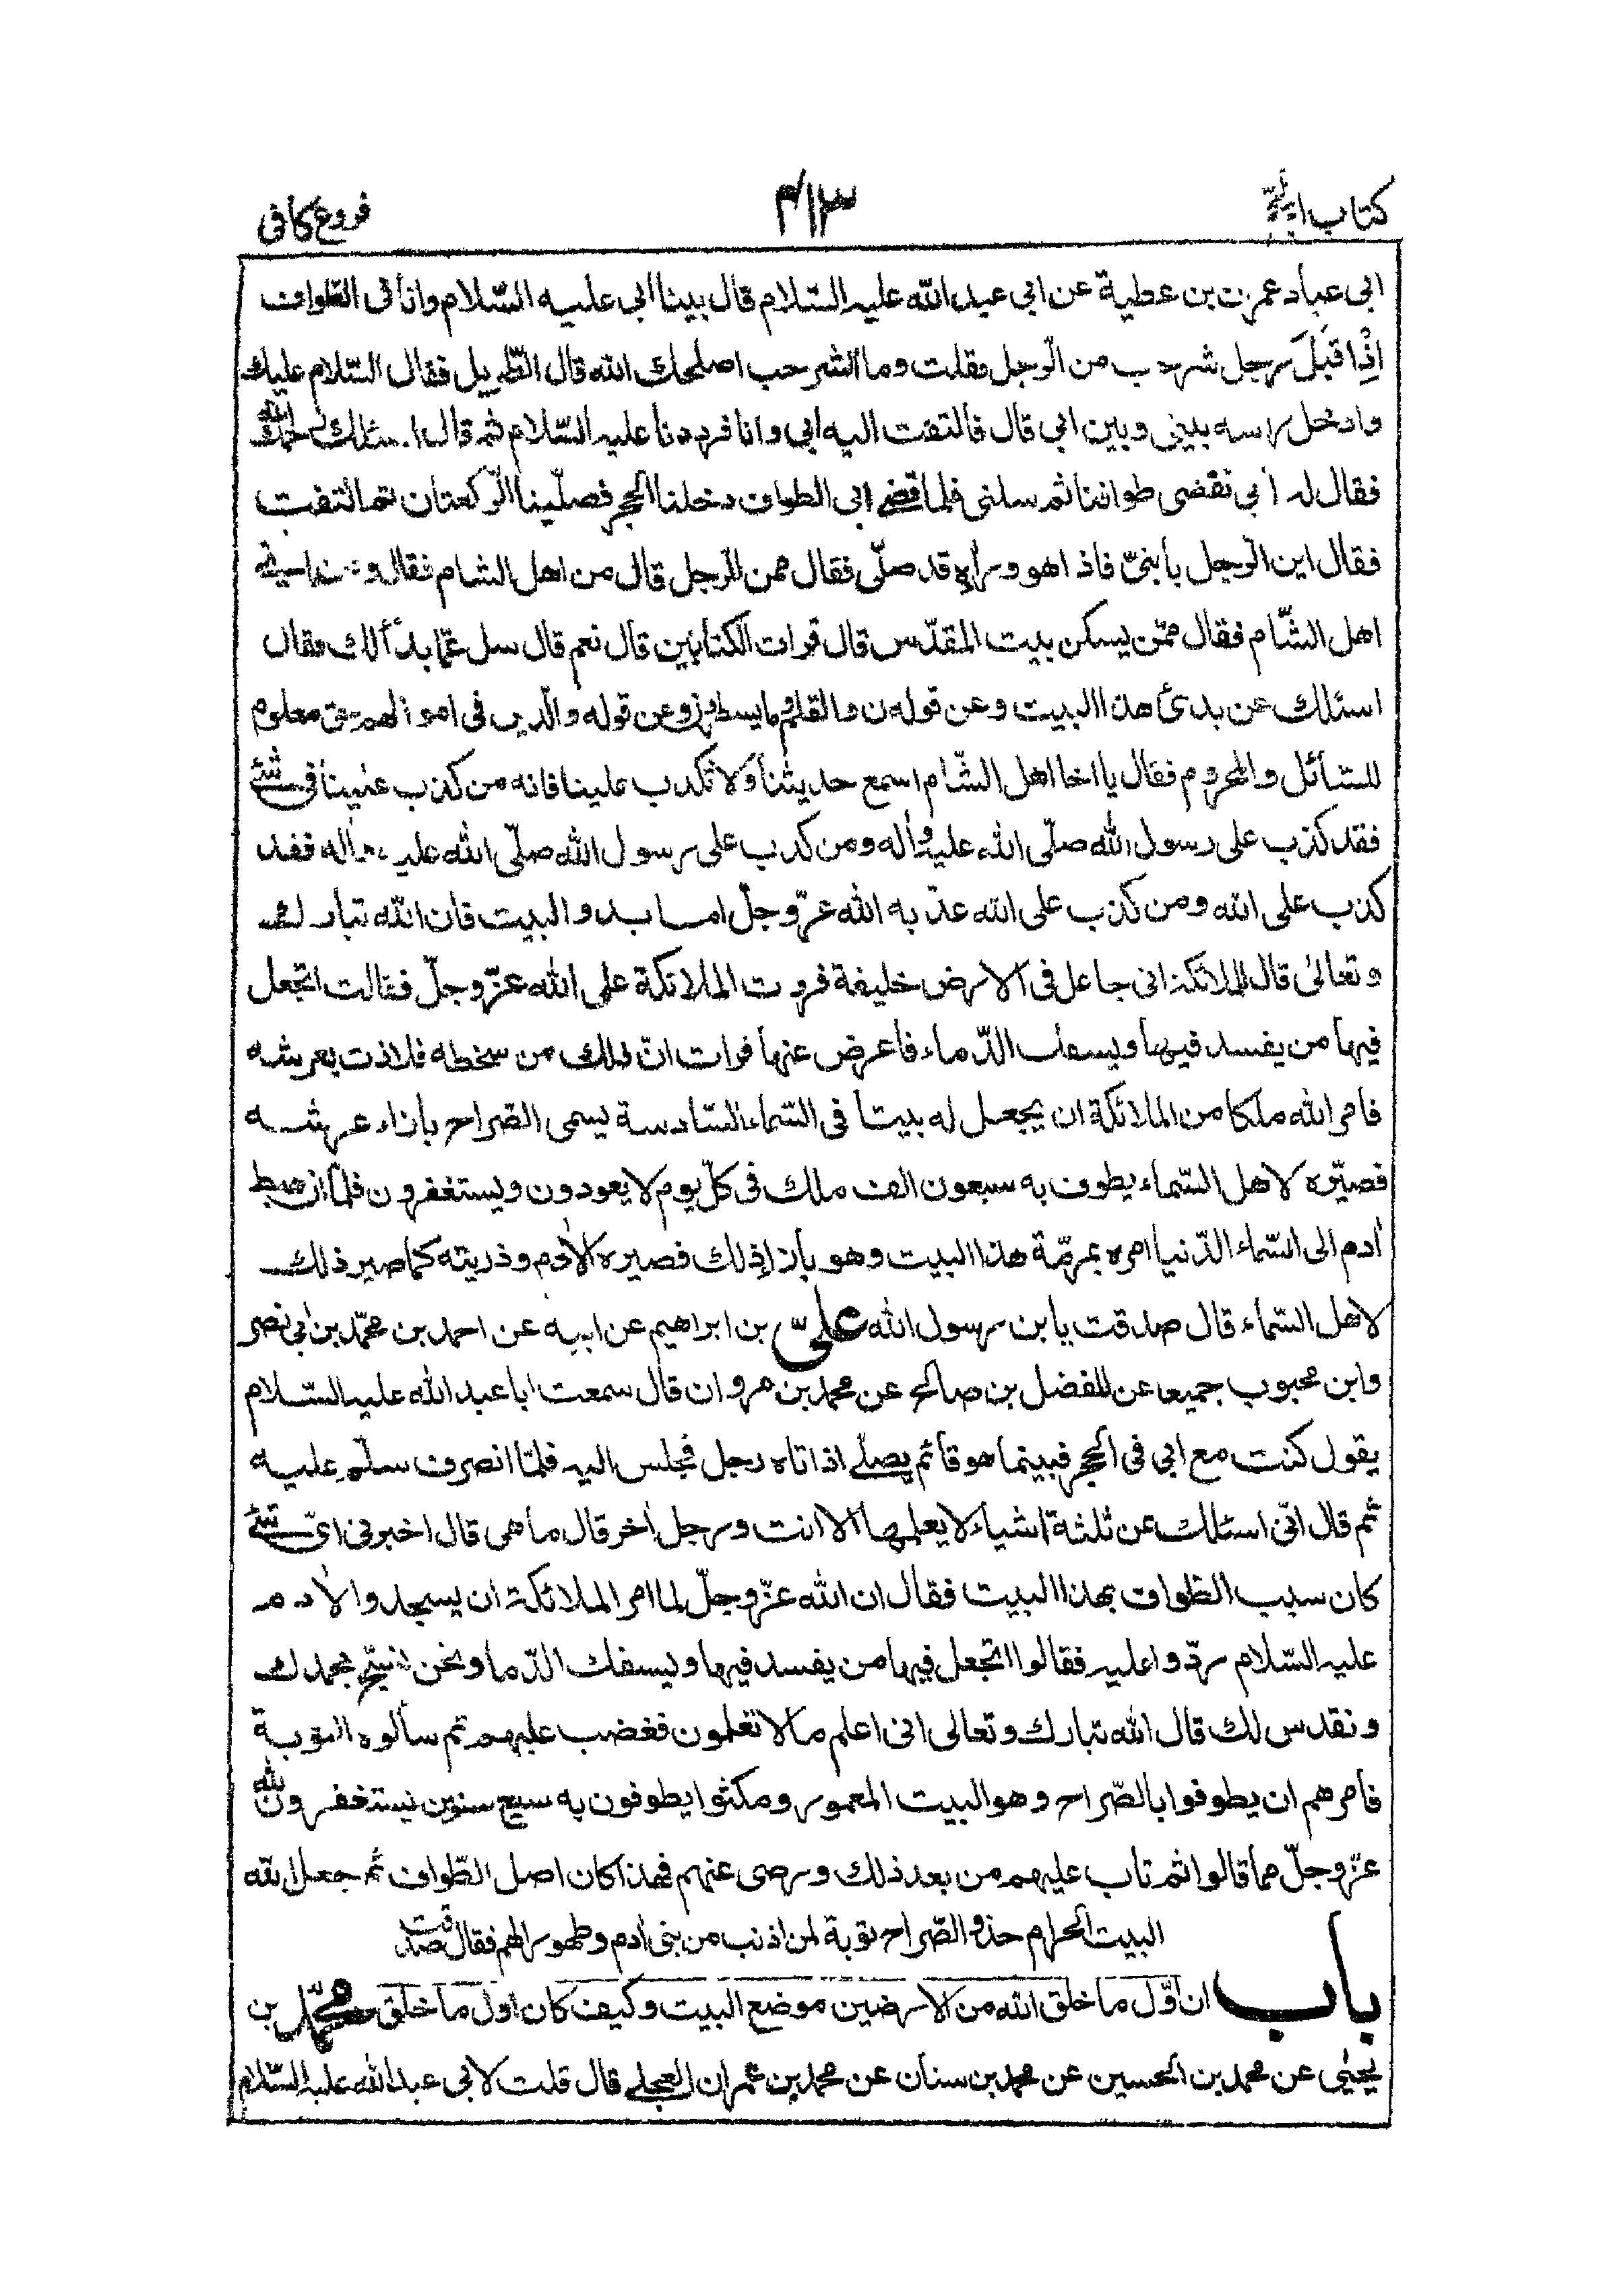 كتاب الحج
٤١٣
فروع كافی
ابی عباد عمران بن عطية عن ابی عبد الله عليه السّلام قال بينا ابی عليه السّلام وانا فی الطّواف
اذا قبل رجل شرحب من الرّجل فقلت وما الشرحب اصلحك الله قال الطّويل فقال السّلام عليك
وادخل راسه بينی وبين ابی قال فالتفت اليه ابی وانا فرددنا عليه السّلام ثم قال اسئلك رحمك الله
فقال له ابی نقضی طوافنا ثم سلنی فلما قضی ابی الطواف دخلنا الحجر فصلّينا الرّكعتان ثم التفت
فقال اين الرّجل يا بنیّ فاذا هو وراه قد صلّی فقال ممن الرجل قال من اهل الشام فقال ومن ای
اهل الشّام فقال ممّن يسكن بيت المقدّس قال قرات الكتابين قال نعم قال سل عمّا بدأ لك فقال
اسئلك عن بدئ هذا البيت وعن قوله ن والقلم وما يسطرون وعن قوله والّذين فی اموالهم حق معلوم
للسّائل والمحروم فقال يا اخا اهل الشّام اسمع حديثنا ولا تكذب علينا فانه من كذب علينا فی شئ
فقد كذب علی رسول الله صلّی الله عليه وآله ومن كذب علی رسول الله صلّی الله عليه وآله فقد
كذب علی الله ومن كذب علی الله عذّبه الله عزّ وجلّ اما بدو البيت فان الله تبارك
وتعالیٰ قال للملائكة انی جاعل فی الارض خليفة فردت الملائكة علی الله عزّ وجلّ فقالت اتجعل
فيها من يفسد فيها ويسفك الدّماء فاعرض عنها فرات انّ ذلك من سخطه فلاذت بعرشه
فامر الله ملكا من الملائكة ان يجعل له بيتا فی السّماء السّادسة يسمی الضراح بازاء عرشه
فصيّره لاهل السّماء يطوف به سبعون الف ملك فی كلّ يوم لا يعودون ويستغفرون فلمّا ان هبط
آدم الی السّماء الدّنيا امره بمرمّة هذا البيت وهو بازاء ذلك فصيره لآدم وذريته كما صير ذلك
لاهل السّماء قال صدقت يا بن رسول الله علیّ بن ابراهيم عن ابيه عن احمد بن محمّد بن ابی نصر
وابن محبوب جميعا عن المفضل بن صالح عن محمد بن مروان قال سمعت ابا عبد الله عليه السّلام
يقول كنت مع ابی فی الحجر فبينما هو قائم يصلّی اذا تاه رجل فجلس اليه فلمّا انصرف سلّم عليه
ثم قال انّی اسئلك عن ثلثة اشياء لا يعلمها الا انت ورجل اٰخر قال ما هی قال اخبرنی ایّ شئ
كان سبب الطّواف بهذا البيت فقال ان الله عزّ وجلّ لما امر الملائكة ان يسجدوا لادم
عليه السّلام ردّوا عليه فقالوا اتجعل فيها من يفسد فيها ويسفك الدّما ونحن نسبّح بحمدك
ونقدس لك قال الله تبارك وتعالی انی اعلم ما لا تعلمون فغضب عليهم ثم سألوه التوبة
فامرهم ان يطوفوا بالضّراح وهو البيت المعمور ومكثوا يطوفون به سبع سنين يستغفرون الله
عزّ وجلّ مما قالوا ثم تاب عليهم من بعد ذلك ورضی عنهم فهذا كان اصل الطّواف ثم جعل الله
البيت الحرام حذو الضّراح توبة لمن اذنب من بنی اٰدم وطهورا لهم فقال صدقت
باب ان اوّل ما خلق الله من الارضين موضع البيت وكيف كان اول ما خلق محمّد بن
يحيٰی عن محمد بن الحسين عن محمد بن سنان عن محمد بن عمران العجلی قال قلت لابی عبد الله عليه السّلام